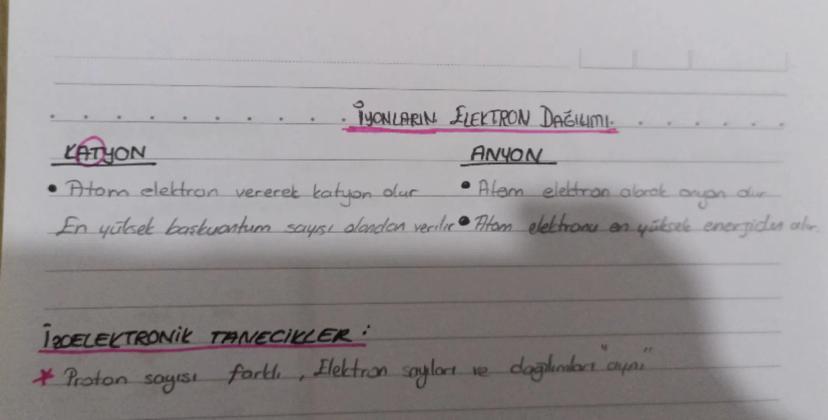 İYONLARIN ELEKTRON DAĞILIMI.
KATYON
ANYON
• Atom elektron vererek katyon olur
• Atom elektron alarak anyon olur
En yüksek başkuantum sayısı olandan verilir
• Atom elektronu en yüksek energiden alır.
İZOELEKTRONİK TANECİKLER :
* Proton sayısı farklı, Elektron sayıları ve dağılımları "aynı"